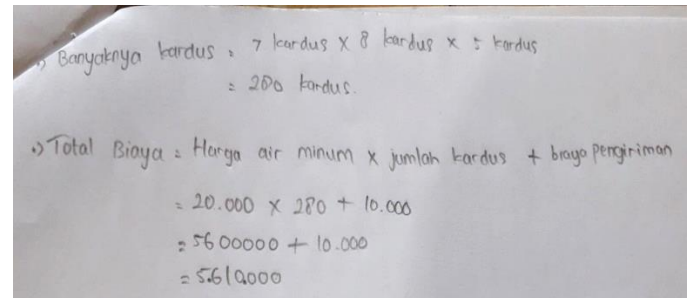 •) Banyaknya kardus = 7 kardus x 8 kardus x 5 kardus
= 280 kardus.
•) Total Biaya = Harga air minum x jumlah kardus + biaya pengiriman
= 20.000 x 280 + 10.000
= 5600000 + 10.000
= 5.610.000